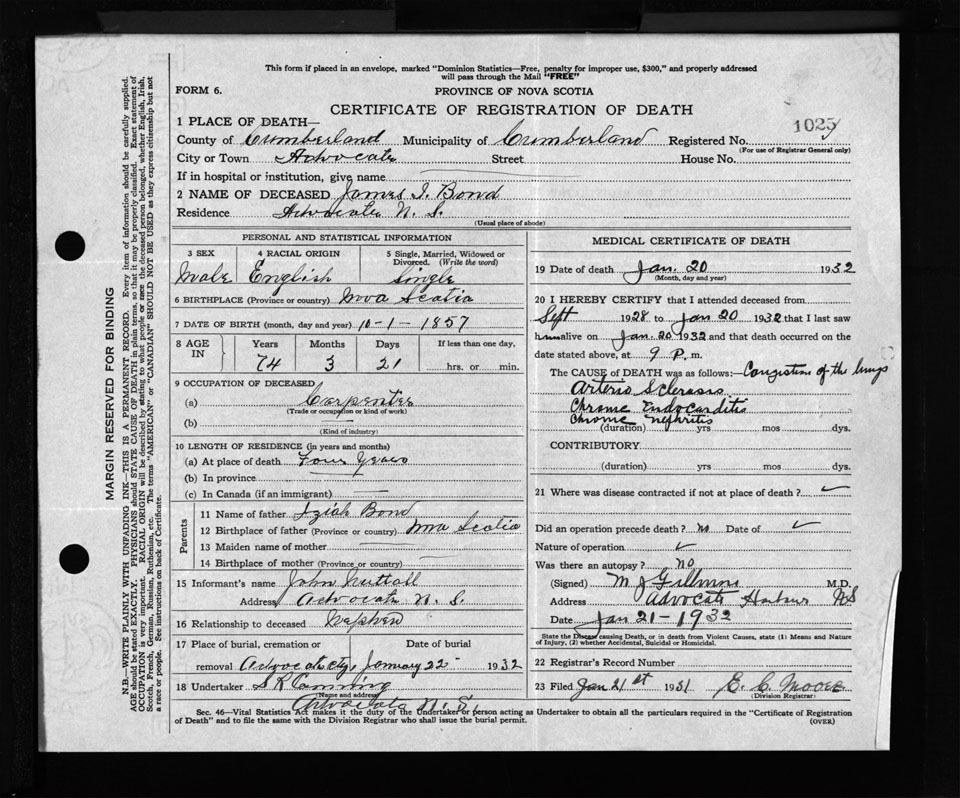 This form if placed in an envelope, marked "Dominion Statistics—Free, penalty for improper use, $300," and properly addressed
will pass through the Mail "FREE"
FORM 6.
PROVINCE OF NOVA SCOTIA
CERTIFICATE OF REGISTRATION OF DEATH
1025
1 PLACE OF DEATH—
County of Cumberland Municipality of Cumberland Registered No.
(For use of Registrar General only)
City or Town Advocate Street House No.
If in hospital or institution, give name
2 NAME OF DECEASED James I. Bond
Residence Advocate N. S.
(Usual place of abode)
PERSONAL AND STATISTICAL INFORMATION
3 SEX 4 RACIAL ORIGIN 5 Single, Married, Widowed or Divorced. (Write the word)
Male English Single
6 BIRTHPLACE (Province or country) Nova Scotia
7 DATE OF BIRTH (month, day and year) 10-1-1857
8 AGE IN Years Months Days If less than one day,
74 3 21 hrs. or min.
9 OCCUPATION OF DECEASED
(a) Carpenter
(Trade or occupation or kind of work)
(b)
(Kind of industry)
10 LENGTH OF RESIDENCE (in years and months)
(a) At place of death Four Years
(b) In province
(c) In Canada (if an immigrant)
Parents
11 Name of father Bond
12 Birthplace of father (Province or country) Nova Scotia
13 Maiden name of mother
14 Birthplace of mother (Province or country)
15 Informant's name John Nuttall
Address Advocate N. S.
16 Relationship to deceased Nephew
17 Place of burial, cremation or Date of burial
removal Advocate January 22 1932
18 Undertaker S R Canning
(Name and address)
Advocate N. S.
MEDICAL CERTIFICATE OF DEATH
19 Date of death Jan. 20 1932
(Month, day and year)
20 I HEREBY CERTIFY that I attended deceased from
Sept 1928 to Jan 20 1932 that I last saw
him alive on Jan. 20 1932 and that death occurred on the
date stated above, at 9 P. m.
The CAUSE OF DEATH was as follows:— Congestion of the lungs
Arterio Sclerosis
Chronic Endocarditis
Chronic Nephritis
(duration) yrs mos dys.
CONTRIBUTORY
(duration) yrs mos dys.
21 Where was disease contracted if not at place of death?
Did an operation precede death? no Date of
Nature of operation
Was there an autopsy? no
(Signed) M J M.D.
Address Advocate Harbour NS
Date Jan 21-1932
State the Disease causing Death, or in death from Violent Causes, state (1) Means and Nature
of Injury, (2) whether Accidental, Suicidal or Homicidal.
22 Registrar's Record Number
23 Filed Jan 21st 1931 E. C. Moore
(Division Registrar)
Sec. 46—Vital Statistics Act makes it the duty of the Undertaker or person acting as Undertaker to obtain all the particulars required in the "Certificate of Registration
of Death" and to file the same with the Division Registrar who shall issue the burial permit.
(OVER)
MARGIN RESERVED FOR BINDING
N.B.—WRITE PLAINLY WITH UNFADING INK—THIS IS A PERMANENT RECORD. Every item of information should be carefully supplied.
AGE should be stated EXACTLY. PHYSICIANS should STATE CAUSE OF DEATH in plain terms, so that it may be properly classified. Exact statement of
OCCUPATION is very important. RACIAL ORIGIN will be described by stating to what people or race the deceased person belonged, whether English, Irish,
Scotch, French, German, Russian, Ruthenian, etc. The terms "AMERICAN" or "CANADIAN" SHOULD NOT BE USED as they express citizenship but not
a race or people. See instructions on back of Certificate.